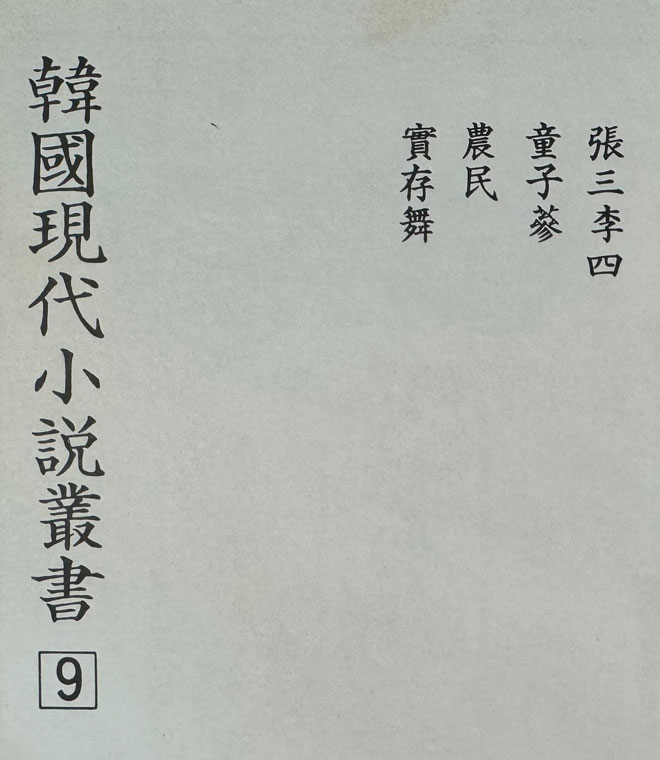 張三李四
童子蔘
農民
實存舞
韓國現代小説叢書 9